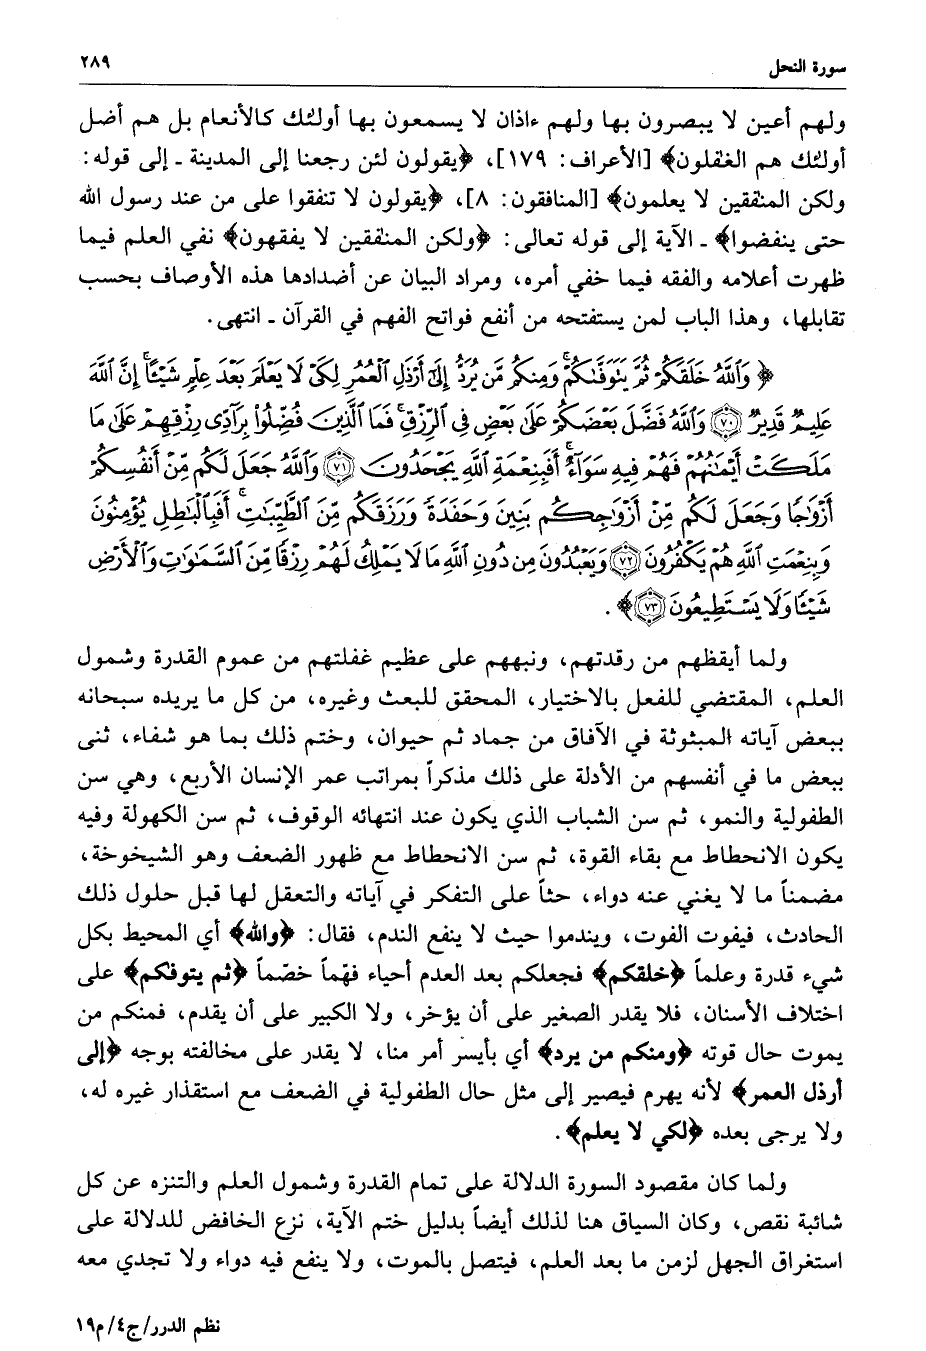 سورة النحل ٢٨٩
ولهم أعين لا يبصرون بها ولهم ءاذان لا يسمعون بها أولئك كالأنعام بل هم أضل
أولئك هم الغفلون﴾ [الأعراف: ١٧٩]، ﴿يقولون لئن رجعنا إلى المدينة ـ إلى قوله:
ولكن المنفقين لا يعلمون﴾ [المنافقون: ٨]، ﴿يقولون لا تنفقوا على من عند رسول الله
حتى ينفضوا﴾ ـ الآية إلى قوله تعالى: ﴿ولكن المنفقين لا يفقهون﴾ نفي العلم فيما
ظهرت أعلامه والفقه فيما خفي أمره، ومراد البيان عن أضدادها هذه الأوصاف بحسب
تقابلها، وهذا الباب لمن يستفتحه من أنفع فواتح الفهم في القرآن ـ انتهى.
﴿ وَٱللَّهُ خَلَقَكُمْ ثُمَّ يَتَوَفَّىٰكُمْ ۚ وَمِنكُم مَّن يُرَدُّ إِلَىٰٓ أَرْذَلِ ٱلْعُمُرِ لِكَىْ لَا يَعْلَمَ بَعْدَ عِلْمٍ شَيْـًٔا ۚ إِنَّ ٱللَّهَ
عَلِيمٌ قَدِيرٌ ﴿٧٠﴾ وَٱللَّهُ فَضَّلَ بَعْضَكُمْ عَلَىٰ بَعْضٍ فِى ٱلرِّزْقِ ۚ فَمَا ٱلَّذِينَ فُضِّلُوا۟ بِرَآدِّى رِزْقِهِمْ عَلَىٰ مَا
مَلَكَتْ أَيْمَـٰنُهُمْ فَهُمْ فِيهِ سَوَآءٌ ۚ أَفَبِنِعْمَةِ ٱللَّهِ يَجْحَدُونَ ﴿٧١﴾ وَٱللَّهُ جَعَلَ لَكُم مِّنْ أَنفُسِكُمْ
أَزْوَٰجًا وَجَعَلَ لَكُم مِّنْ أَزْوَٰجِكُم بَنِينَ وَحَفَدَةً وَرَزَقَكُم مِّنَ ٱلطَّيِّبَـٰتِ ۚ أَفَبِٱلْبَـٰطِلِ يُؤْمِنُونَ
وَبِنِعْمَتِ ٱللَّهِ هُمْ يَكْفُرُونَ ﴿٧٢﴾ وَيَعْبُدُونَ مِن دُونِ ٱللَّهِ مَا لَا يَمْلِكُ لَهُمْ رِزْقًا مِّنَ ٱلسَّمَـٰوَٰتِ وَٱلْأَرْضِ
شَيْـًٔا وَلَا يَسْتَطِيعُونَ ﴿٧٣﴾ ﴾.
ولما أيقظهم من رقدتهم، ونبههم على عظيم غفلتهم من عموم القدرة وشمول
العلم، المقتضي للفعل بالاختيار، المحقق للبعث وغيره، من كل ما يريده سبحانه
ببعض آياته المبثوثة في الآفاق من جماد ثم حيوان، وختم ذلك بما هو شفاء، ثنى
ببعض ما في أنفسهم من الأدلة على ذلك مذكراً بمراتب عمر الإنسان الأربع، وهي سن
الطفولية والنمو، ثم سن الشباب الذي يكون عند انتهائه الوقوف، ثم سن الكهولة وفيه
يكون الانحطاط مع بقاء القوة، ثم سن الانحطاط مع ظهور الضعف وهو الشيخوخة،
مضمناً ما لا يغني عنه دواء، حثاً على التفكر في آياته والتعقل لها قبل حلول ذلك
الحادث، فيفوت الفوت، ويندموا حيث لا ينفع الندم، فقال: ﴿والله﴾ أي المحيط بكل
شيء قدرة وعلماً ﴿خلقكم﴾ فجعلكم بعد العدم أحياء فهّماً خصّماً ﴿ثم يتوفكم﴾ على
اختلاف الأسنان، فلا يقدر الصغير على أن يؤخر، ولا الكبير على أن يقدم، فمنكم من
يموت حال قوته ﴿ومنكم من يرد﴾ أي بأيسر أمر منا، لا يقدر على مخالفته بوجه ﴿إلى
أرذل العمر﴾ لأنه يهرم فيصير إلى مثل حال الطفولية في الضعف مع استقذار غيره له،
ولا يرجى بعده ﴿لكي لا يعلم﴾.
ولما كان مقصود السورة الدلالة على تمام القدرة وشمول العلم والتنزه عن كل
شائبة نقص، وكان السياق هنا لذلك أيضاً بدليل ختم الآية، نزع الخافض للدلالة على
استغراق الجهل لزمن ما بعد العلم، فيتصل بالموت، ولا ينفع فيه دواء ولا تجدي معه
نظم الدرر/ج٤/م١٩